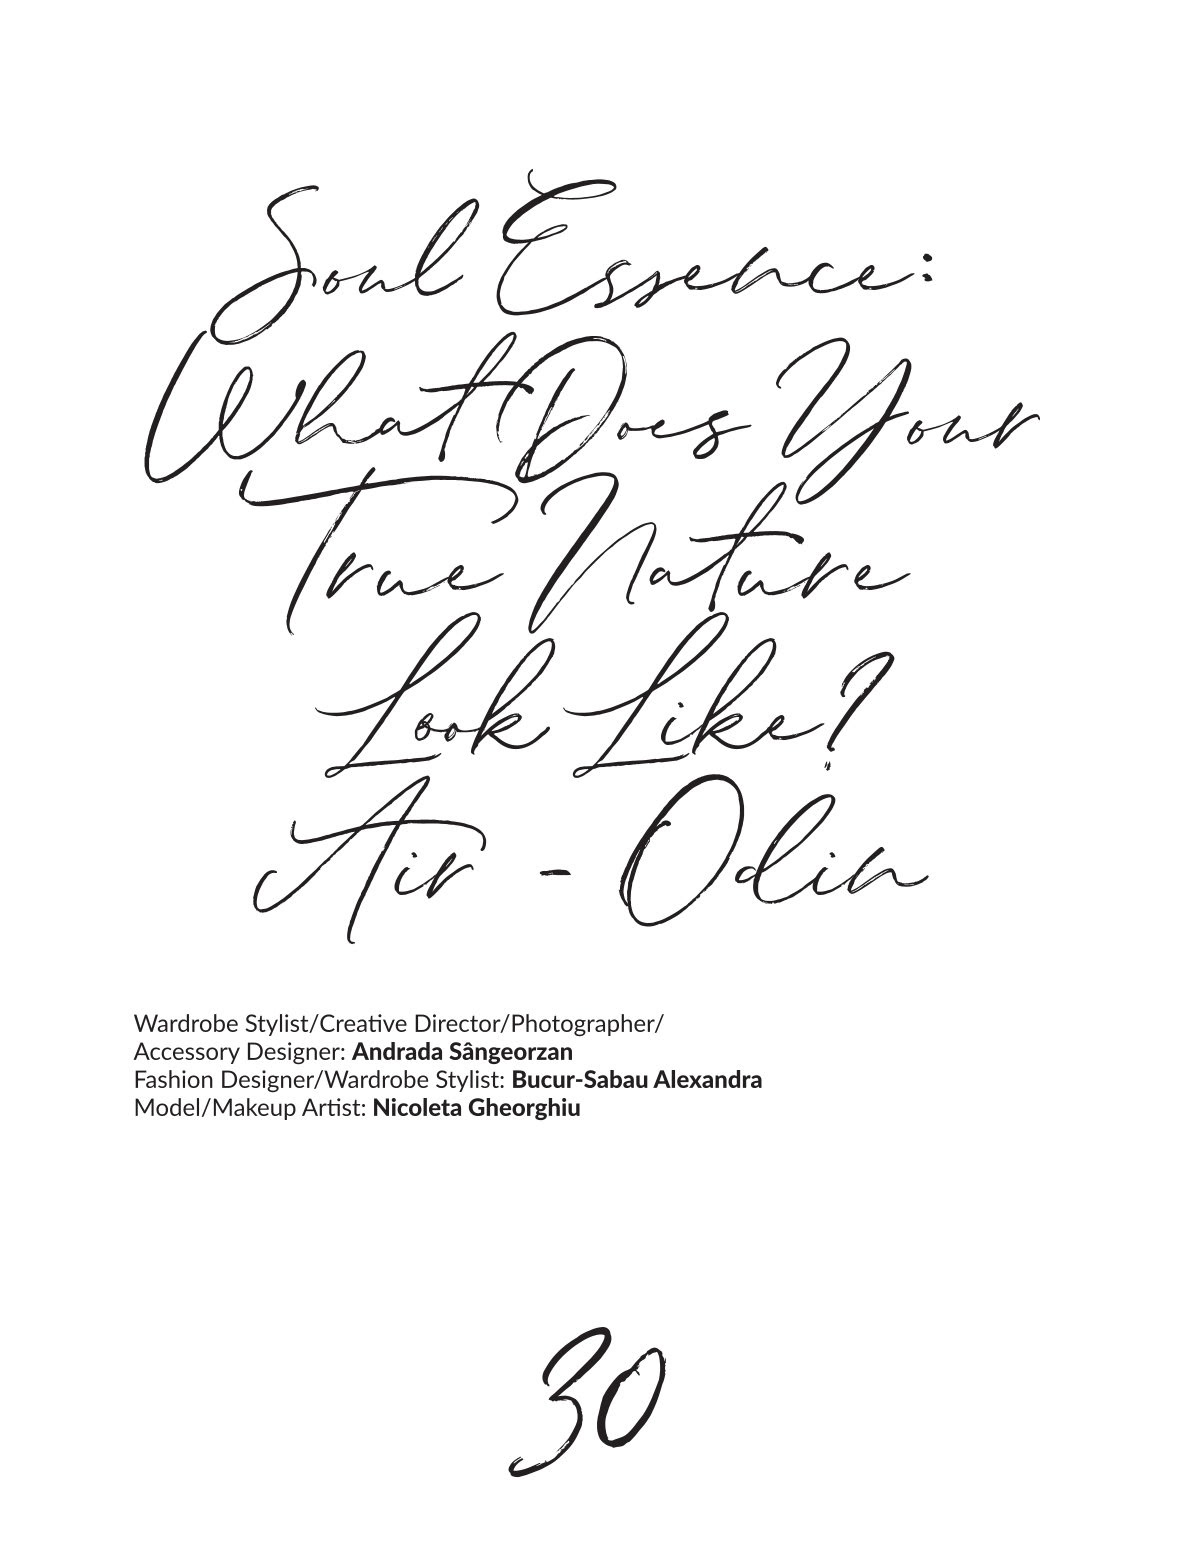 Soul Essence:
What Does Your
True Nature
Look Like?
Air - Odin
Wardrobe Stylist/Creative Director/Photographer/
Accessory Designer: Andrada Sângeorzan
Fashion Designer/Wardrobe Stylist: Bucur-Sabau Alexandra
Model/Makeup Artist: Nicoleta Gheorghiu
30